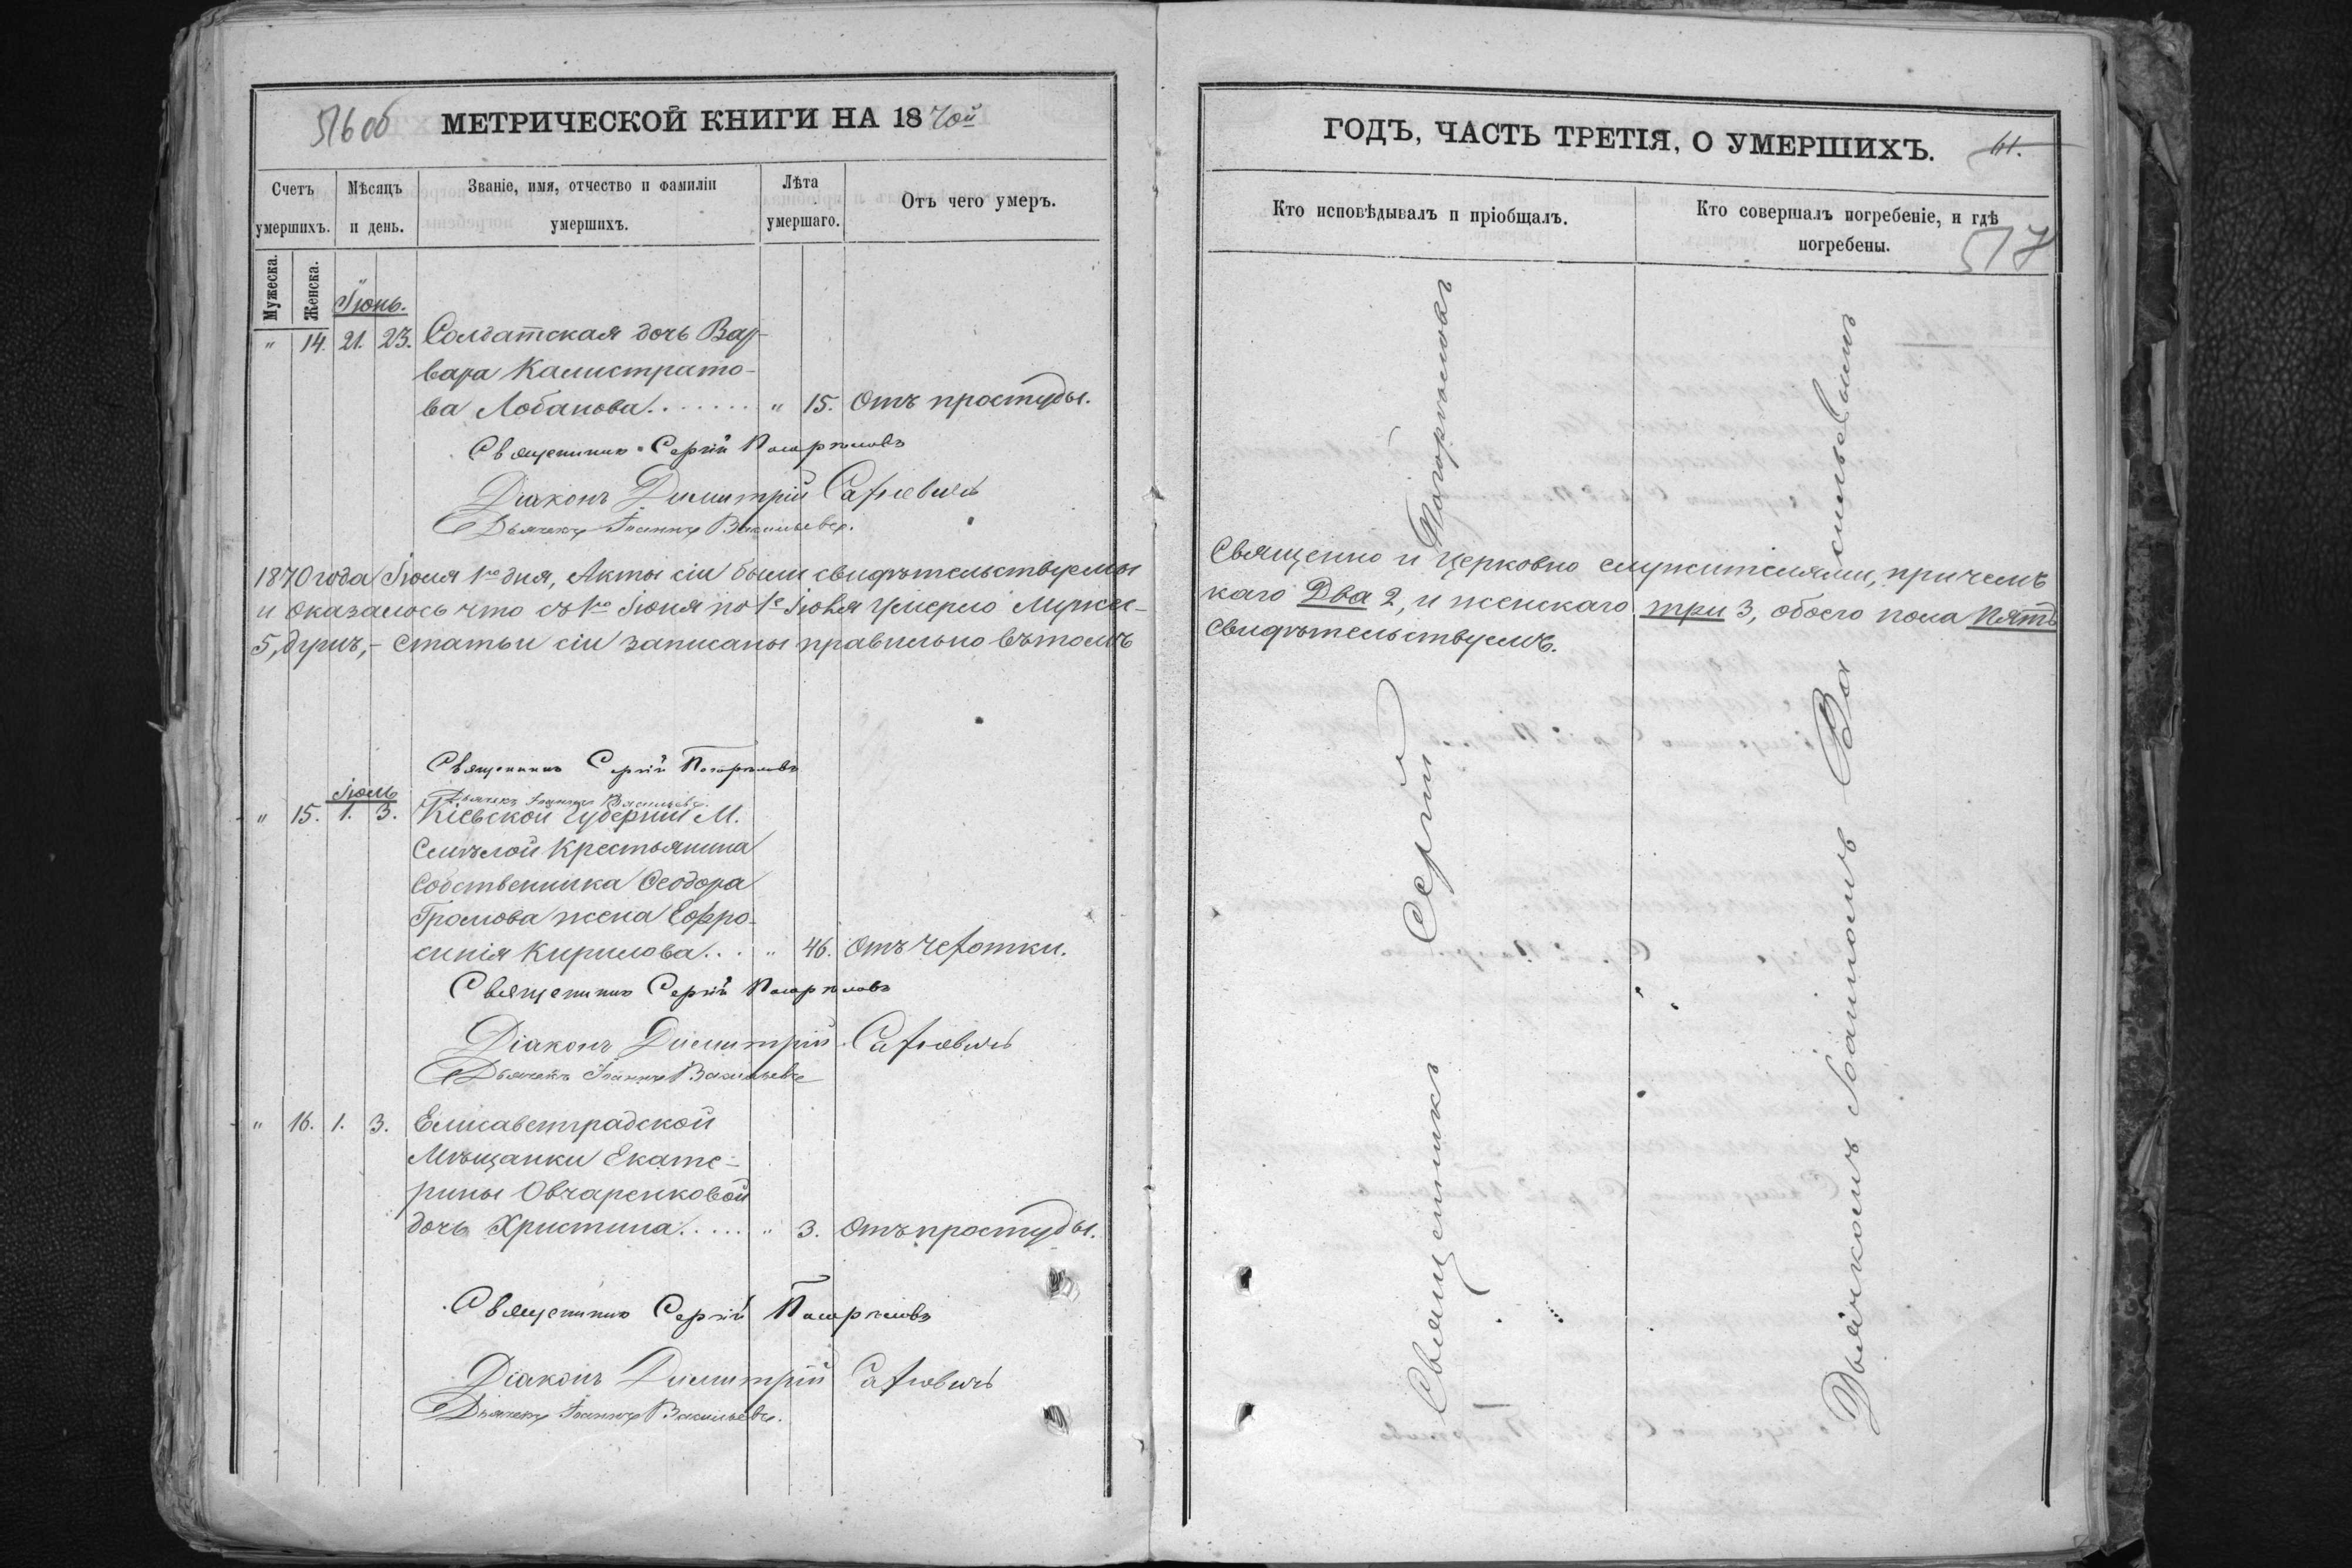 516 об МЕТРИЧЕСКОЙ КНИГИ НА 1870й
Счетъ умершихъ.
Мѣсяцъ и день.
Званіе, имя, отчество и фамиліи умершихъ.
Лѣта умершаго.
Отъ чего умеръ.
Мужеска.
Женска.
Іюнь.
" 14. 21. 23. Солдатская дочь Вар-
вара Калистрато-
ва Лобанова. . . . . . . " 15. Отъ простуды.
Священникъ Сергій Погорѣловъ
Діаконъ Димитрій
Дьячекъ Іоаннъ Васильевъ.
1870 года Іюля 1го дня, Акты сіи были свидѣтельствуемы
и оказалось что съ 1го Іюня по 1е Іюля умерло Мужес-
5, душъ, - Статьи сіи записаны правильно въ томъ
Священникъ Сергій Погорѣловъ
Дьячекъ Іоаннъ Васильевъ.
Іюль
" 15. 1. 3. Кіевской Губерніи М.
Смѣлой Крестьянина
Собственника Ѳеодора
Громова жена Евфро-
синія Кирилова. . . " 46. Отъ чехотки.
Священникъ Сергій Погорѣловъ
Діаконъ Димитрій
Дьячекъ Іоаннъ Васильевъ
" 16. 1. 3. Елисаветградской
Мѣщанки Екате-
рины Овчаренковой
дочь Христина. . . . . " 3. Отъ простуды.
Священникъ Сергій Погорѣловъ
Діаконъ Димитрій
Дьячекъ Іоаннъ Васильевъ.
ГОДЪ, ЧАСТЬ ТРЕТІЯ, О УМЕРШИХЪ. 41.
Кто исповѣдывалъ и пріобщалъ.
Кто совершалъ погребеніе, и гдѣ погребены.
517
Священно и церковно служителями, при чемъ
каго Два 2, и женскаго три 3, обоего пола Пять
свидѣтельствуемъ.
Священникъ Сергій Погорѣловъ
Дьячкомъ Іоанномъ Васильевымъ